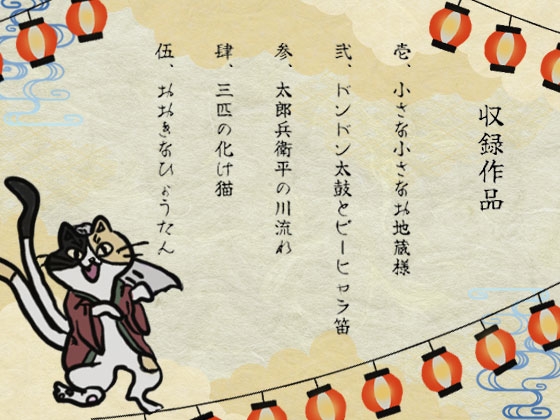 収録作品
壱、小さな小さなお地蔵様
弐、ドンドン太鼓とピーヒャラ笛
参、太郎兵衛平の川流れ
肆、三匹の化け猫
伍、おおきなひょうたん